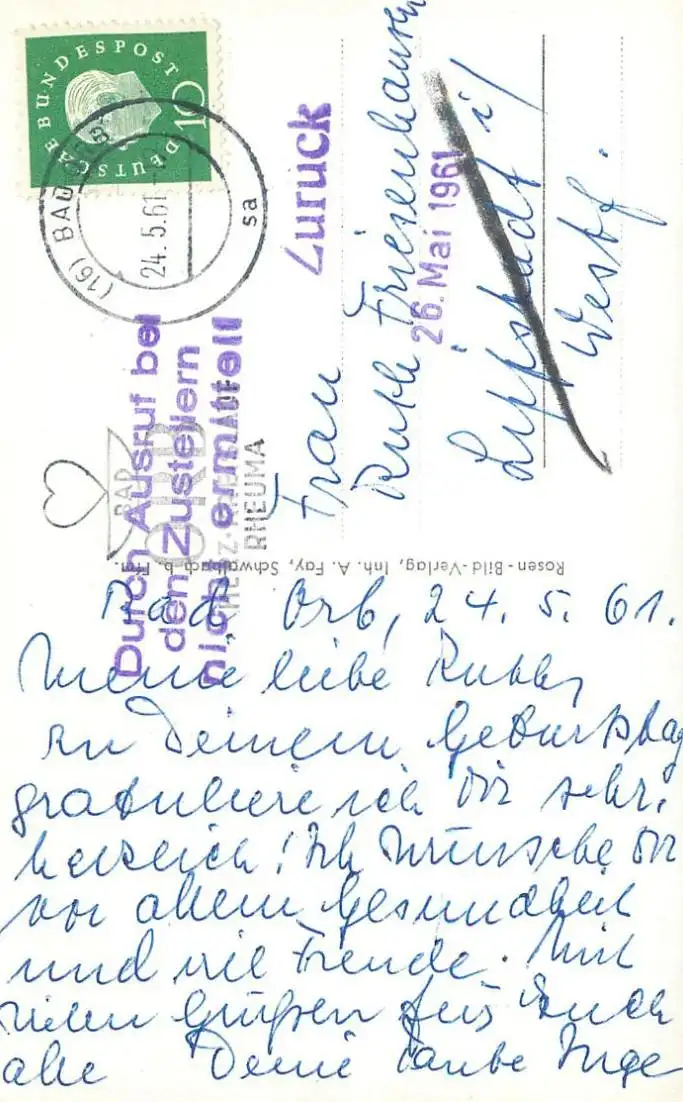 DEUTSCHE BUNDESPOST
10
(16) BAD
24.5.61
sa
BAD
ORB
RHEUMA
Zurück
26. Mai 1961
Durch Ausruf bei
den Zustellern
nicht ermittelt
Frau
Ruth Friesenhausen
Lippstadt i/
Westf.
Rosen-Bild-Verlag, Inh. A. Fay, Schwalbach b. Ffm.
Bad Orb, 24. 5. 61.
Meine liebe Ruth,
zu Deinem Geburtstag
gratuliere ich Dir sehr
herzlich! Ich wünsche Dir
vor allem Gesundheit
und viel Freude. Mit
vielen Grüßen für Euch
alle Deine Tante Inge